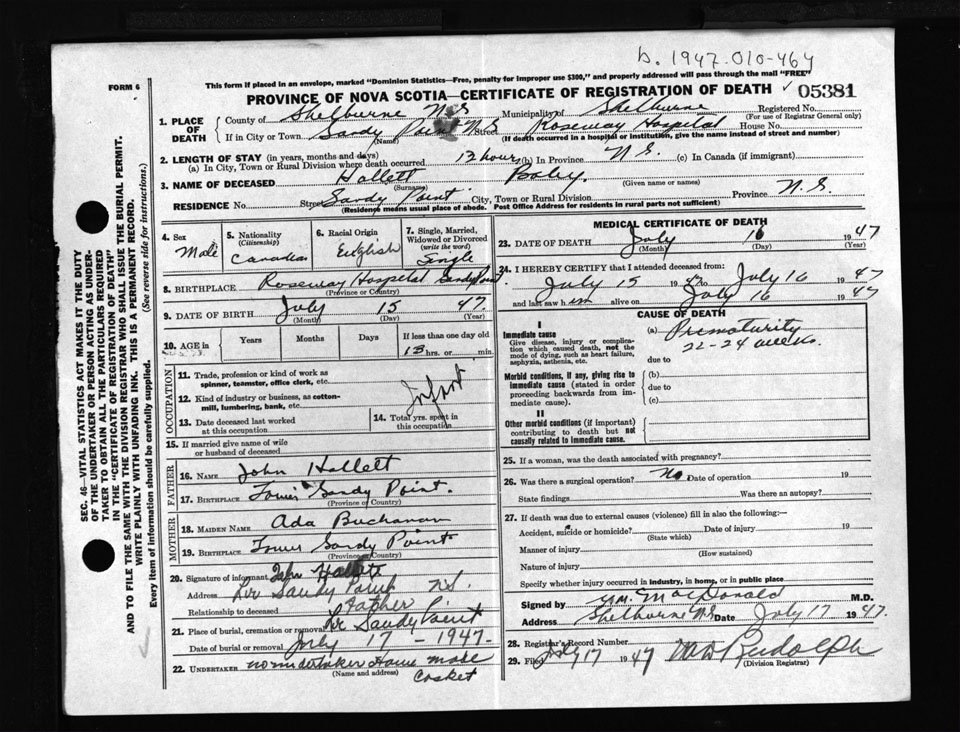 b. 1947-010-464
FORM 6
This form if placed in an envelope, marked "Dominion Statistics—Free, penalty for improper use $300," and properly addressed will pass through the mail "FREE"
PROVINCE OF NOVA SCOTIA—CERTIFICATE OF REGISTRATION OF DEATH 05381
1. PLACE OF DEATH County of Shelburne N S Municipality of Shelburne Registered No.
(For use of Registrar General only)
If in City or Town Sandy Point N.S. Street Roseway Hospital House No.
(Name) (If death occurred in a hospital or institution, give the name instead of street and number)
2. LENGTH OF STAY (in years, months and days)
(a) In City, Town or Rural Division where death occurred 13 hours (b) In Province N S. (c) In Canada (if immigrant)
3. NAME OF DECEASED Hallett Baby.
(Surname) (Given name or names)
RESIDENCE No. Street Sandy Point City, Town or Rural Division Province N. S.
(Residence means usual place of abode. Post Office Address for residents in rural parts not sufficient)
4. Sex Male
5. Nationality (Citizenship) Canadian
6. Racial Origin English
7. Single, Married, Widowed or Divorced (write the word) Single
8. BIRTHPLACE Roseway Hospital Sandy Point
(Province or Country)
9. DATE OF BIRTH July 15 47.
(Month) (Day) (Year)
10. AGE in Years Months Days If less than one day old
13 hrs. or min.
OCCUPATION
11. Trade, profession or kind of work as spinner, teamster, office clerk, etc. Infant
12. Kind of industry or business, as cotton-mill, lumbering, bank, etc.
13. Date deceased last worked at this occupation
14. Total yrs. spent in this occupation
15. If married give name of wife or husband of deceased
FATHER
16. NAME John Hallett
17. BIRTHPLACE Lower Sandy Point.
(Province or Country)
MOTHER
18. MAIDEN NAME Ada Buchanan
19. BIRTHPLACE Lower Sandy Point
(Province or Country)
20. Signature of informant John Hallett
Address Lr Sandy Point N S.
Relationship to deceased Father
21. Place of burial, cremation or removal Lr Sandy Point
Date of burial or removal July 17 - 1947.
22. UNDERTAKER no undertaker Home made casket
(Name and address)
MEDICAL CERTIFICATE OF DEATH
23. DATE OF DEATH July 16 1947
(Month) (Day) (Year)
24. I HEREBY CERTIFY that I attended deceased from:
July 15 1947 to July 16 1947
and last saw h im alive on July 16 1947
CAUSE OF DEATH
I
Immediate cause
Give disease, injury or complication which caused death, not the mode of dying, such as heart failure, asphyxia, asthenia, etc.
(a) Prematurity
22-24 weeks.
due to
Morbid conditions, if any, giving rise to immediate cause (stated in order proceeding backwards from immediate cause).
(b)
due to
(c)
II
Other morbid conditions (if important) contributing to death but not causally related to immediate cause.
25. If a woman, was the death associated with pregnancy?
26. Was there a surgical operation? No Date of operation 19
State findings Was there an autopsy?
27. If death was due to external causes (violence) fill in also the following:—
Accident, suicide or homicide? Date of injury 19
(State which)
Manner of injury
(How sustained)
Nature of injury
Specify whether injury occurred in industry, in home, or in public place
Signed by MacDonald M.D.
Address Shelburne N S Date July 17 1947.
28. Registrar's Record Number
29. Filed July 17 1947 Rudolph
(Division Registrar)
SEC. 46—VITAL STATISTICS ACT MAKES IT THE DUTY
OF THE UNDERTAKER OR PERSON ACTING AS UNDER-
TAKER TO OBTAIN ALL THE PARTICULARS REQUIRED
IN THE "CERTIFICATE OF REGISTRATION OF DEATH"
AND TO FILE THE SAME WITH THE DIVISION REGISTRAR WHO SHALL ISSUE THE BURIAL PERMIT.
WRITE PLAINLY WITH UNFADING INK. THIS IS A PERMANENT RECORD.
(See reverse side for instructions.)
Every item of information should be carefully supplied.